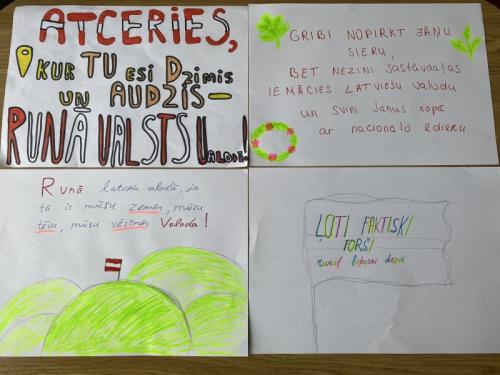 ATCERIES,
KUR TU ESI DZIMIS
UN AUDZIS—
RUNĀ VALSTS VALODĀ!
GRIBI NOPIRKT JĀŅU
SIERU,
BET NEZINI SASTĀVDAĻAS
IEMĀCIES LATVIEŠU VALODU
UN SVINI JĀŅUS KOPĀ
AR NACIONĀLO ĒDIENU.
Runā latviešu valodā, jo
tā ir mūsu zemes, mūsu
tēvu, mūsu vēstures Valoda!
ĻOTI FAKTISKI
FORŠI
runāt latviešu